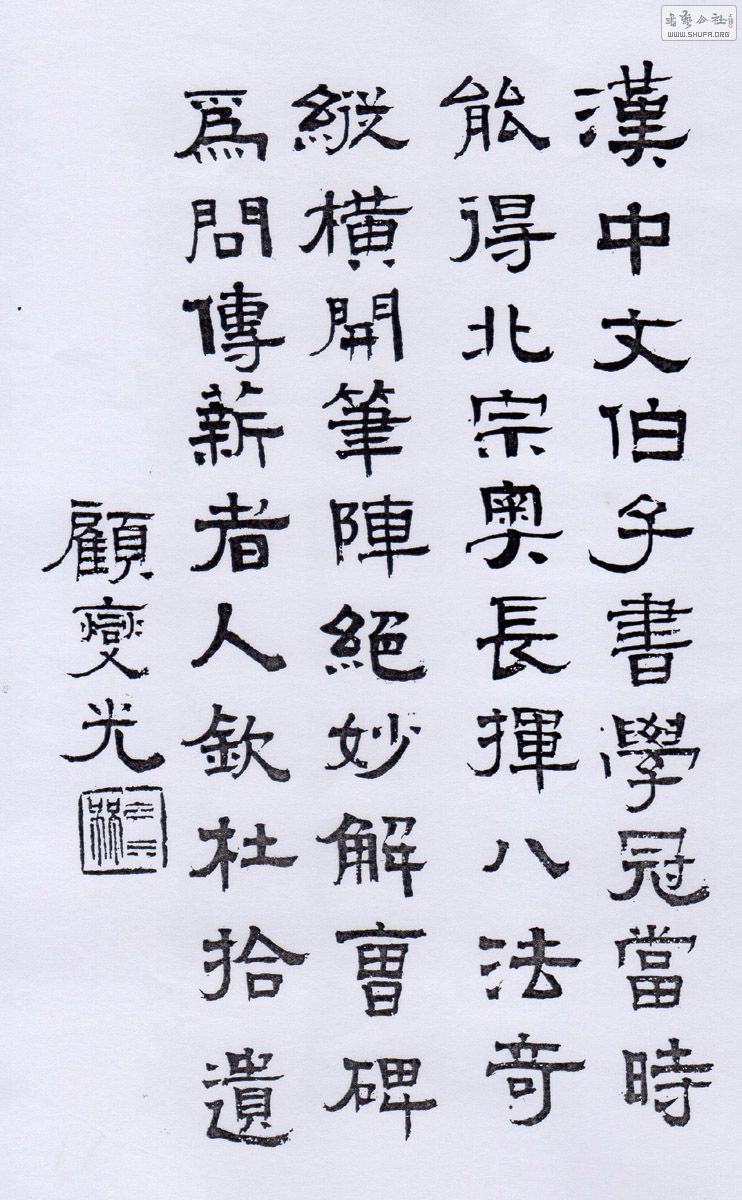 漢中文伯子書學冠當時
能得北宗奧長揮八法奇
縱橫開筆陣絕妙解曹碑
爲問傳薪者人欽杜拾遺
顧燮光
書藝公社
WWW.SHUFA.ORG